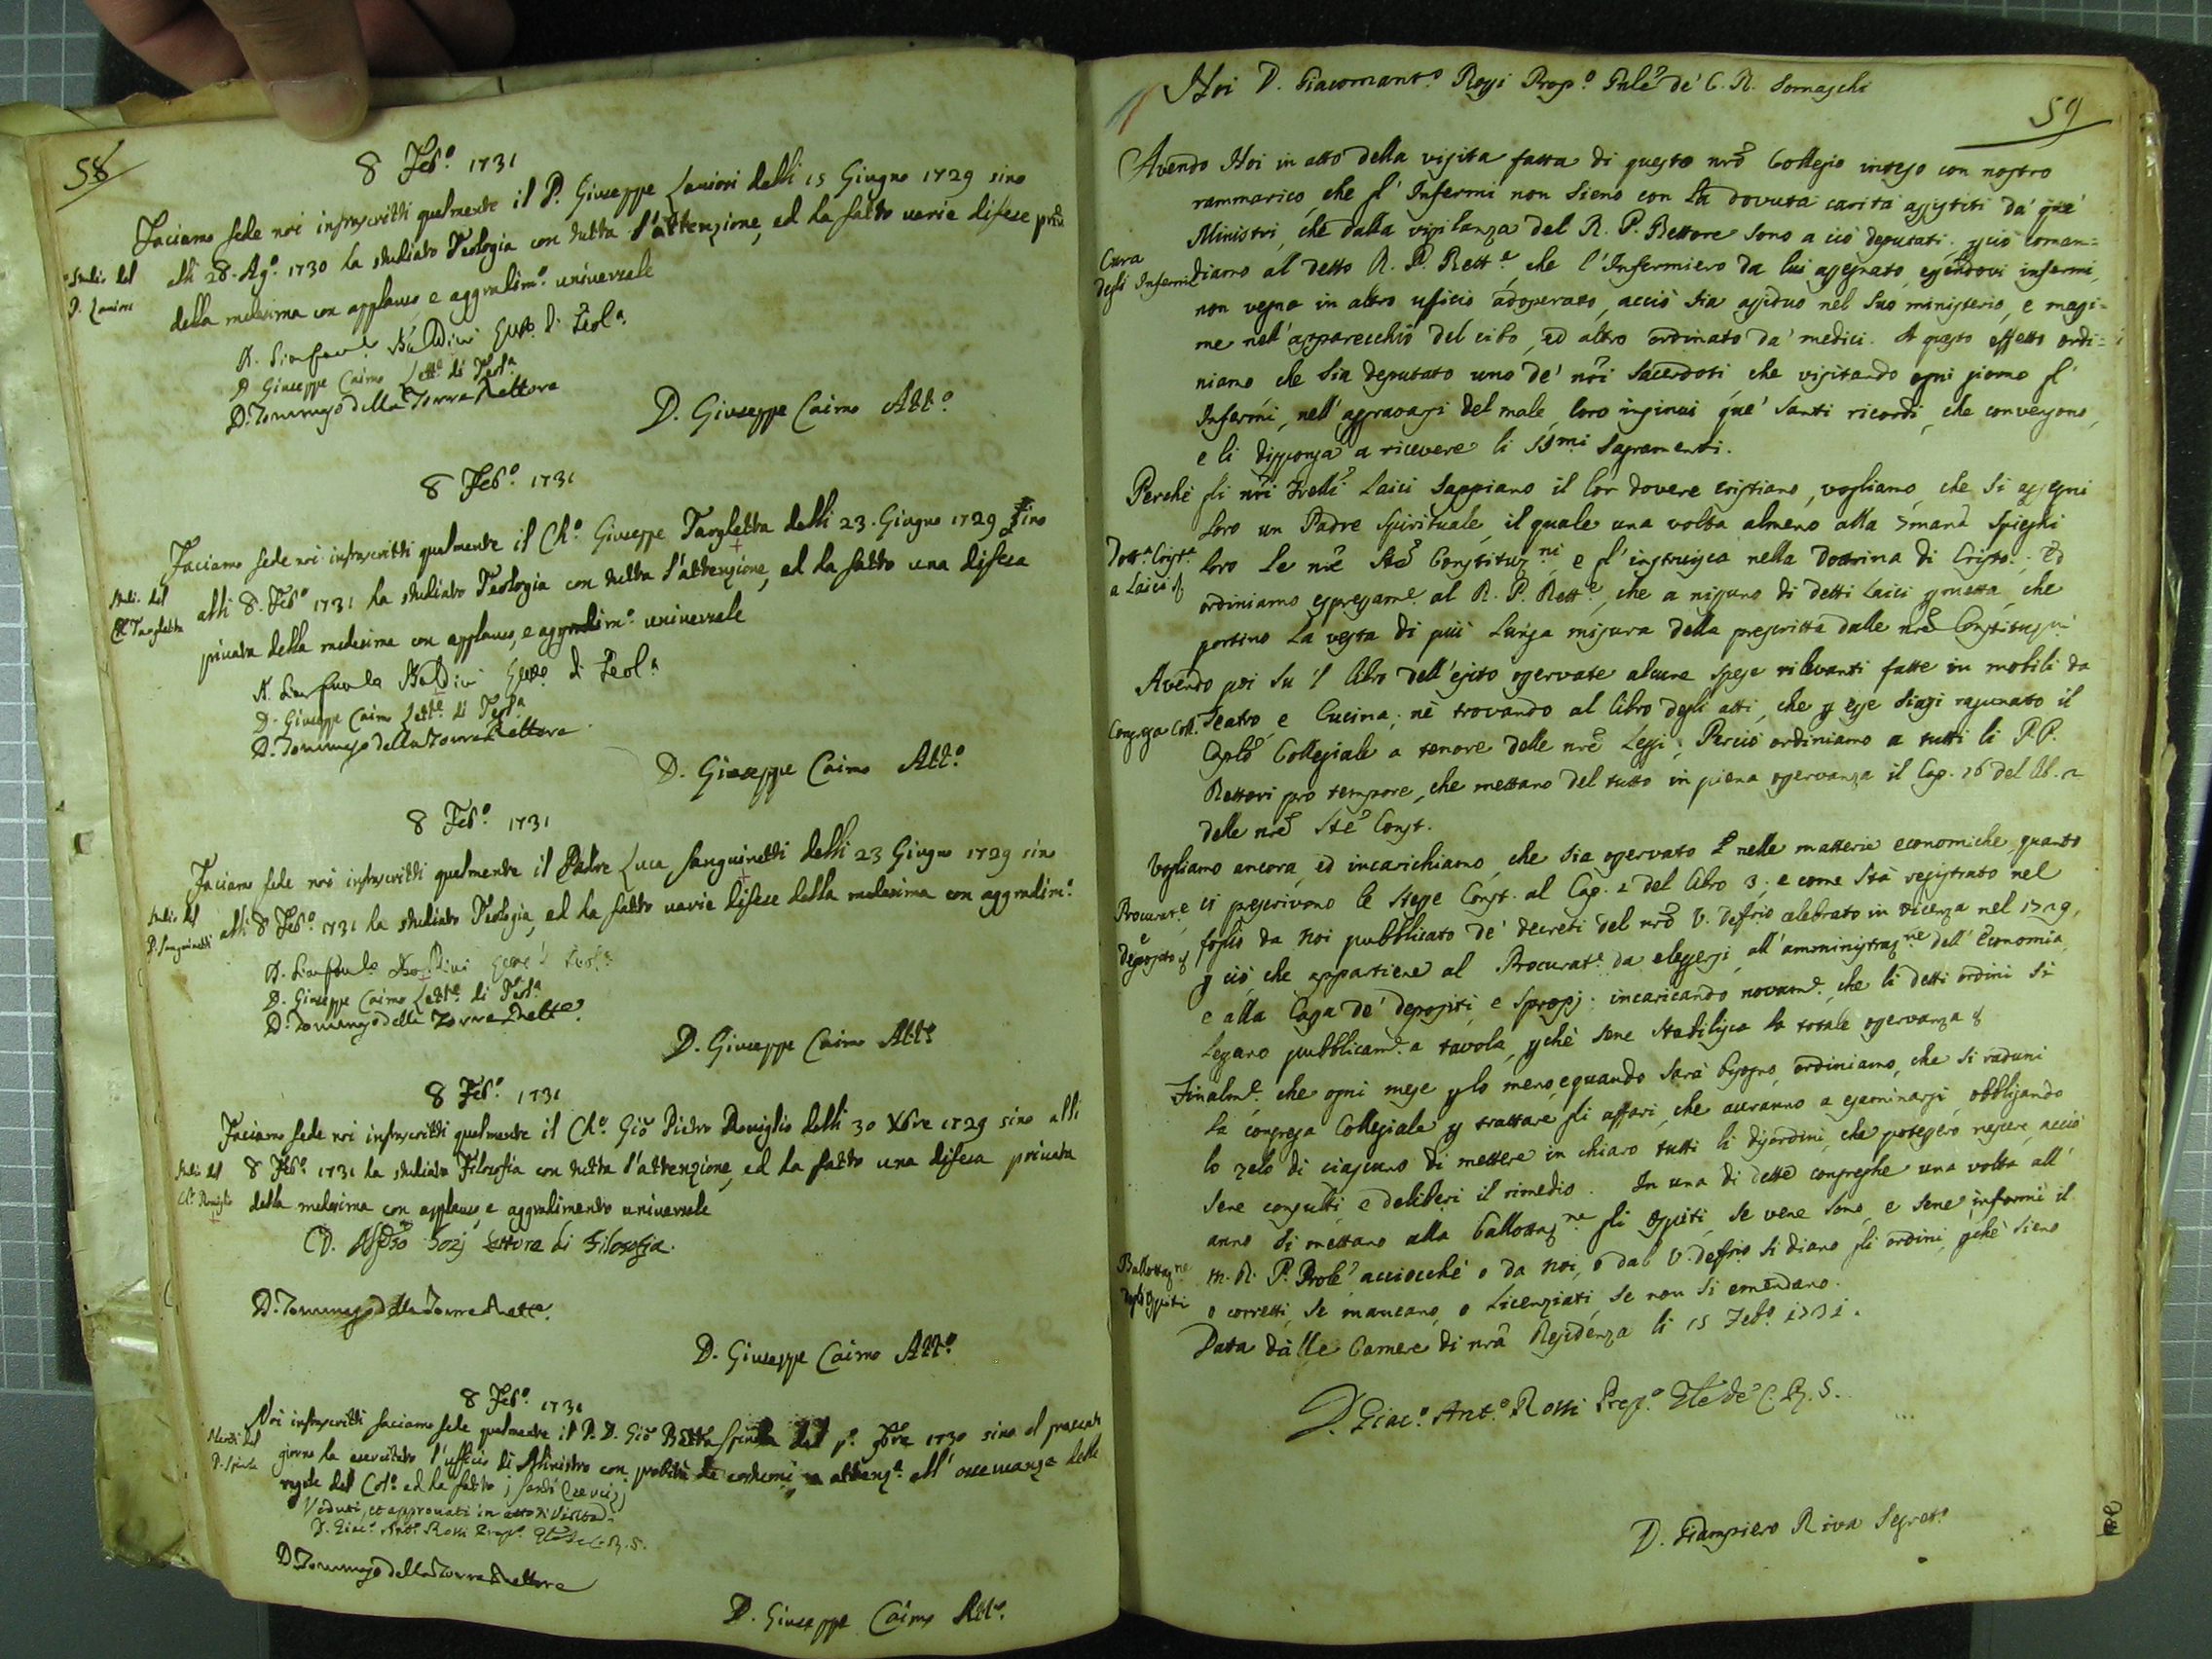 58
8 Feb.º 1731
Faciamo fede noi infrascritti qualmente il P. Giuseppe Lanioni dalli 15 Giugno 1729 sino
Studio del
P. Lanioni
alli 28. Ag.º 1730 ha studiato Teologia con tutta l'attenzione, ed ha fatto varie difese
della medesima con applauso, e aggradim.º universale
D. Giuseppe Caimo Lett.e di Teol.a
D. Tommaso della Torre Rettore
D. Giuseppe Caimo Att.º
8 Feb.º 1731
Faciamo fede noi infrascritti qualmente il Ch.º Giuseppe Targhetta dalli 23. Giugno 1729 sino
Studi. del
Ch. Targhetta
alli 8. Feb.º 1731 ha studiato Teologia con tutta l'attenzione, ed ha fatto una difesa
privata della medesima con applauso, e aggradim.º universale
D. Giuseppe Caimo Lett.e di Teol.a
D. Tommaso della Torre Rettore
D. Giuseppe Caimo Att.º
8 Feb.º 1731
Faciamo fede noi infrascritti qualmente il Padre Luca Sanguinetti dalli 23 Giugno 1729 sino
Studio del
P. Sanguinetti
alli 8 Feb.º 1731 ha studiato Teologia, ed ha fatto varie difese della medesima con aggradim.º
D. Giuseppe Caimo Lett.e di Teol.a
D. Tommaso della Torre Rett.e
D. Giuseppe Caimo Att.º
8 Feb.º 1731
Faciamo fede noi infrascritti qualmente il Ch.º Giõ Pietro Roviglio dalli 30 Xbre 1729 sino alli
Studio del
Ch. Roviglio
8 Feb.º 1731 ha studiato Filosofia con tutta l'attenzione, ed ha fatto una difesa privata
della medesima con applauso, e aggradimento universale
Lettore di Filosofia.
D. Tommaso della Torre Rett.e
D. Giuseppe Caimo Att.º
8 Feb.º 1731
Noi infrascritti faciamo fede qualmente il P. D. Giõ Batta Spinola dal p.º 1730 sino al presente
P. Spinola
giorno ha esercitato l'ufficio di Ministro con probità de costumi, e attenz.e all'osservanza delle
regole del Col.º ed ha fatto i santi Esercizj
Veduti, et approvati in atto di Visita
D. Giac.º Ant.º Rossi Prep.º Gñle de C. R. S.
D. Tommaso della Torre Rettore
D. Giuseppe Caimo Att.º
59
Noi D. Giacomant.º Rossi Prep.º Gñle de' C. R. Somaschi
Avendo Noi in atto della visita fatta di questo nr̃o Collegio inteso con nostro
rammarico, che gl' Infermi non sieno con la dovuta carità assistiti da' que'
Ministri, che dalla vigilanza del R. P. Rettore sono a ciò deputati; p ciò coman=
Cura
degli Infermi
diamo al detto R. P. Rett.e, che l'Infermiero da lui assegnato, essendovi infermi,
non venga in altro ufficio adoperato, acciò sia assiduo nel suo ministerio, e massi=
me nell'apparecchio del cibo, ed altro ordinato da' medici. A questo effetto ordi=
niamo che sia deputato uno de' nr̃i Sacerdoti che visitando ogni giorno gl'
Infermi, nell'aggravarsi del male, loro insinui que' santi ricordi, che convengono,
e li disponga a ricevere li SS.mi Sagramenti.
Perchè gli nr̃i Frelli Laici sappiano il lor dovere cristiano, vogliamo, che si assegni
loro un Padre Spirituale, il quale una volta almeno alla Smana Spieghi
Dott.a Crist.a
a Laici
loro le nr̃e Ste Constituz.ni, e gl' instruisca nella Dottrina di Cristo; Ed
ordiniamo espressam.e al R. P. Rett.e, che a nissuno di detti Laici pmetta, che
portino la veste di più lunga misura della prescritta dalle nr̃e Constituzni
Avendo poi su 'l libro dell'esito osservate alcune spese rilevanti fatte in mobili da
Congrega Coll.
Teatro, e Cucina; nè trovando al libro degli atti, che p esse siasi ragunato il
Caplo Collegiale a tenore delle nr̃e Leggi; Perciò ordiniamo a tutti li P.P.
Rettori pro tempore, che mettano del tutto in piena osservanza il Cap. 16 del lib. 2
delle nr̃e Ste Const.
Vogliamo ancora, ed incarichiamo, che sia osservato nelle materie economiche quanto
Procurat.e
e
Deposito
ci prescrivono le stesse Const. al Cap. 2 del libro 3; e come stà registrato nel
foglio da Noi pubblicato de' decreti del nr̃o V. Deffrio celebrato in Vicenza nel 1729,
p ciò, che appartiene al Procurat.e da eleggersi, all'amministraz.ne dell'Economia,
e alla Cassa de' depositi, e Sproprj; incaricando novam.e, che li detti ordini si
legano pubblicam.e a tavola, pchè sene stabilisca la totale osservanza
Finalm.e che ogni mese p lo meno, e quando sarà bisogno, ordiniamo, che si raduni
la congrega Collegiale p trattare gli affari, che auranno a esaminarsi, obbligando
lo zelo di ciascuno di mettere in chiaro tutti li disordini, che potessero nascere, acciò
sene consulti, e deliberi il rimedio. In una di dette congreghe una volta all'
anno si mettano alla ballottaz.ne gli Ospiti, se vene sono, e sene informi il
Ballottaz.ne
degli Ospiti
M. R. P. Prole acciocchè o da Noi, o dal V. Deffrio si diano gli ordini, pchè sieno
o corretti, se mancano, o licenziati, se non si emendano.
Data dalle Camere di nr̃a Residenza li 15 Feb.º 1731.
D. Giac.º Ant.º Rossi Prep.º Gñle de' C. R. S.
D. Giampiero Riva Segret.º